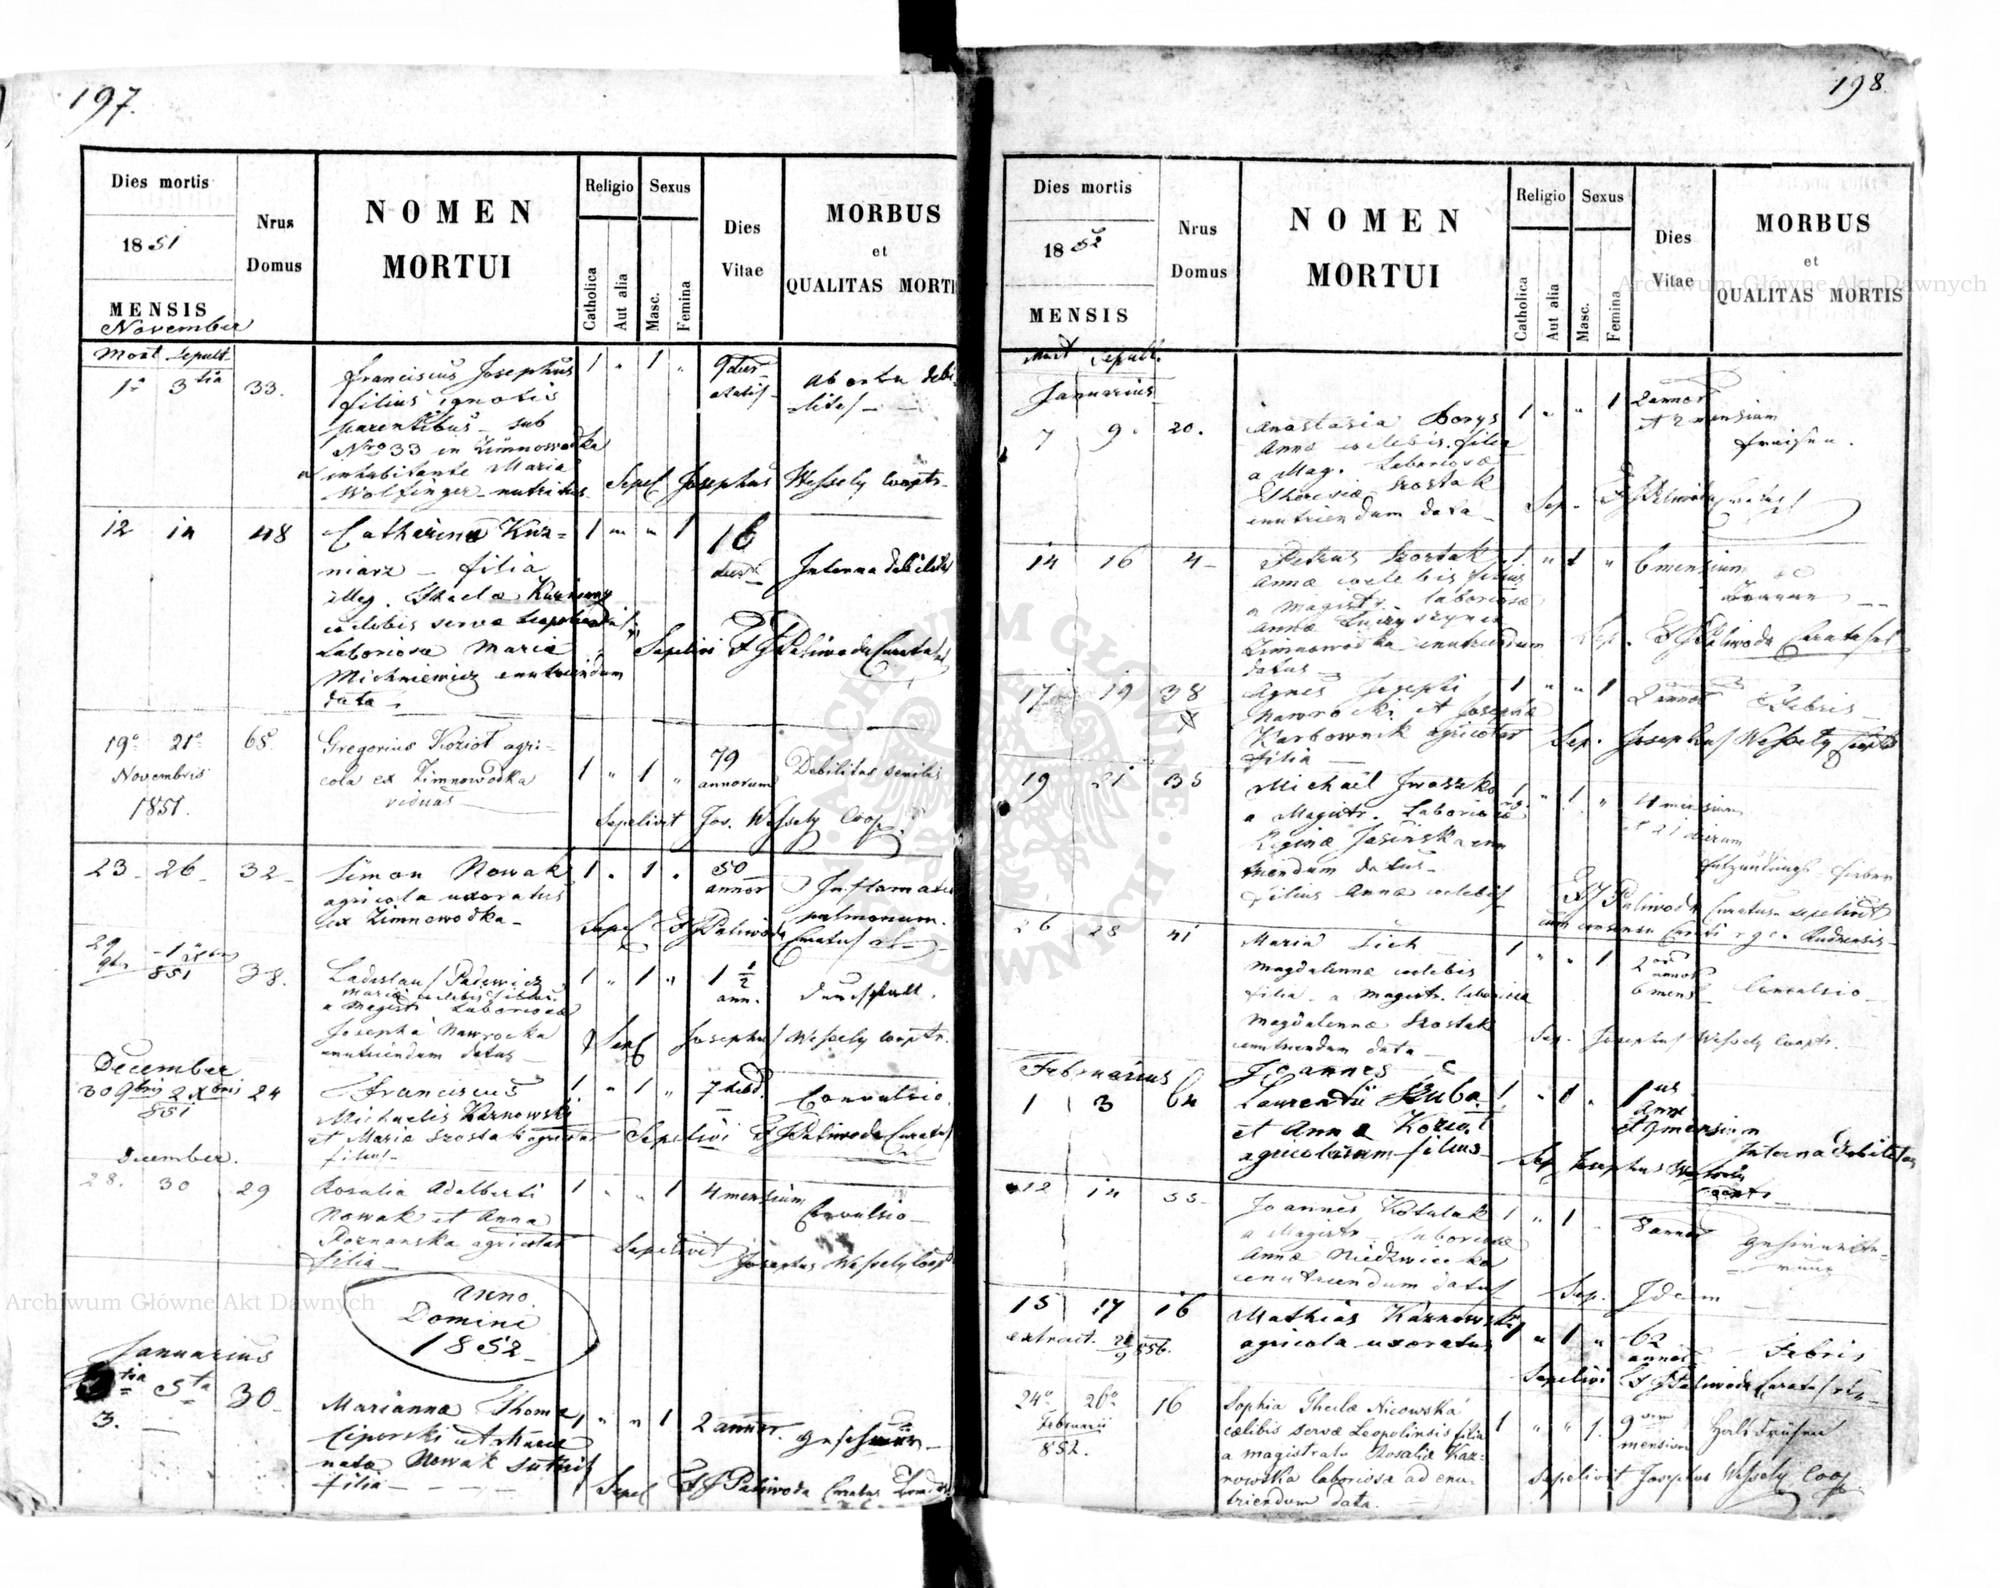 197.
Dies mortis
1851
MENSIS
November
Nrus
Domus
NOMEN
MORTUI
Religio
Catholica
Aut alia
Sexus
Masc.
Femina
Dies
Vitae
MORBUS
et
QUALITAS MORTI
Mort Sepult
1a 3tia 33.
Franciscus Josephus
filius ignotis
parentibus sub
Nro 33 in Zimnowodka
inhabitante Maria
Wolfinger nutritus
1 " 1 "
9 dier
aetatis
Ab ortu debi-
litas
Sepel Josephus Wessely Cooptr.
12 14 48
Catharina Kuz-
niarz filia
illeg. Theclae
caelebis servae
Laboriosa Maria
Michniewicz enutriendum
data
1 " " 1
16
dier
Interna debilitas
Sepelivi F J Paliwoda Curatus
19a 21a 68
Novembris
1851.
Gregorius Kozioł agri-
cola ex Zimnowodka
viduus
1 " 1 "
79
annorum
Debilitas senilis
Sepelivit Jos. Wessely Coop.
23 26 32
Simon Nowak
agricola uxoratus
ex Zimnowodka
1 " 1 "
50
annor
Inflamatio
pulmonum.
Sepel F J Paliwoda Curatus
29
9br
851
38.
Ladislaus
Mariae caelebis filius
a Magistr Laboriosae
Josepha Nawrocka
enutriendum datus
1 " 1 "
1 1/2
ann.
Durchfall.
Sepel Josephus Wessely Cooptr.
December
30 9bris 2 Xbris 24
851
Franciscus
Michaelis Karnowski
et Maria Szostak
filius
1 " 1 "
7 hebd.
Convulsio.
Sepelivi F J Paliwoda Curatus
December.
28. 30 29
Rosalia Adalberti
Nowak et Anna
Poznanska agricolar
filia
1 " " 1
4 mensium
Convulsio
Sepelivit
Josephus Wessely Coop
Anno
Domini
1852
Januarius
3tia 5ta 30
3.
Marianna Thoma
Nowak
filia
1 " " 1
2 annor.
Geschwür
Sepel F J Paliwoda Curatus
198.
Dies mortis
1852
MENSIS
Nrus
Domus
NOMEN
MORTUI
Religio
Catholica
Aut alia
Sexus
Masc.
Femina
Dies
Vitae
MORBUS
et
QUALITAS MORTIS
Mort Sepult.
Januarius
7 9. 20.
Anastasia Borys
Anna caelebis filia
a Mag. Laboriosae
Theresiae Szostak
enutriendum data
1 " " 1
2 annor
et 2 mensium
Fraisen.
Sep. F J Paliwoda Curatus
14 16 4
Petrus Szostak
Annae caelebis filius
a Magistr. laboriosae
Annae
Zimnowodka enutriendum
datus
1 " 1 "
6 mensium
Sep. F J Paliwoda Curatus
17 19 38
Agnes Josephi
Nawrocki et Josepha
Karbownik agricolar
filia
1 " " 1
2 annor
Febris
Sep. Josephus Wessely Cooptr
19 21 35
Michaël Iwaszko
a Magistr. Laboriosae
Reginae Jasinska enu
triendum datus
filius Annae caelebis
1 " 1 "
4 mensium
et 21 dierum
Entzündungs Fieber
F J Paliwoda Curatus sepelivit
cum consensu Curati
26 28 41
Maria Lich
Magdalenae caelebis
filia a Magistr. laboriosa
Magdalenae Szostak
enutriendum data
1 " " 1
2
annor
6 mens
Convulsio
Sep. Josephus Wessely Cooptr.
Februarius
1 3 64
Joannes
Laurentii Kuba
et Anna Kozioł
agricolarum filius
1 " 1 "
1 us
Anni
et 9 mensium
Interna debilitas
Sep Josephus Wessely
Cooptr
12 14 55
Joannes Kotulak
a Magistr laboriosae
Annae Niedzwiecka
enutriendum datus
1 " 1
8 annor
Sep. Idem
15 17 16
extract. 856.
Mathias Karnowski
agricola uxoratus
1 " 1 "
62
annor
Febris
Sepelivi F J Paliwoda Curatus
24a 26a 16
Februarii
852.
Sophia Theclae Nicowska
caelibis servae Leopoliensis filia
a magistratu Rosaliae Kar-
nowska laboriosae ad enu-
triendum data.
1 " " 1.
9
mensium
Hals drüsen
Sepelivit Josephus Wessely Coop
Archiwum Główne Akt Dawnych
Archiwum Główne Akt Dawnych
ARCHIWUM GŁÓWNE AKT DAWNYCH